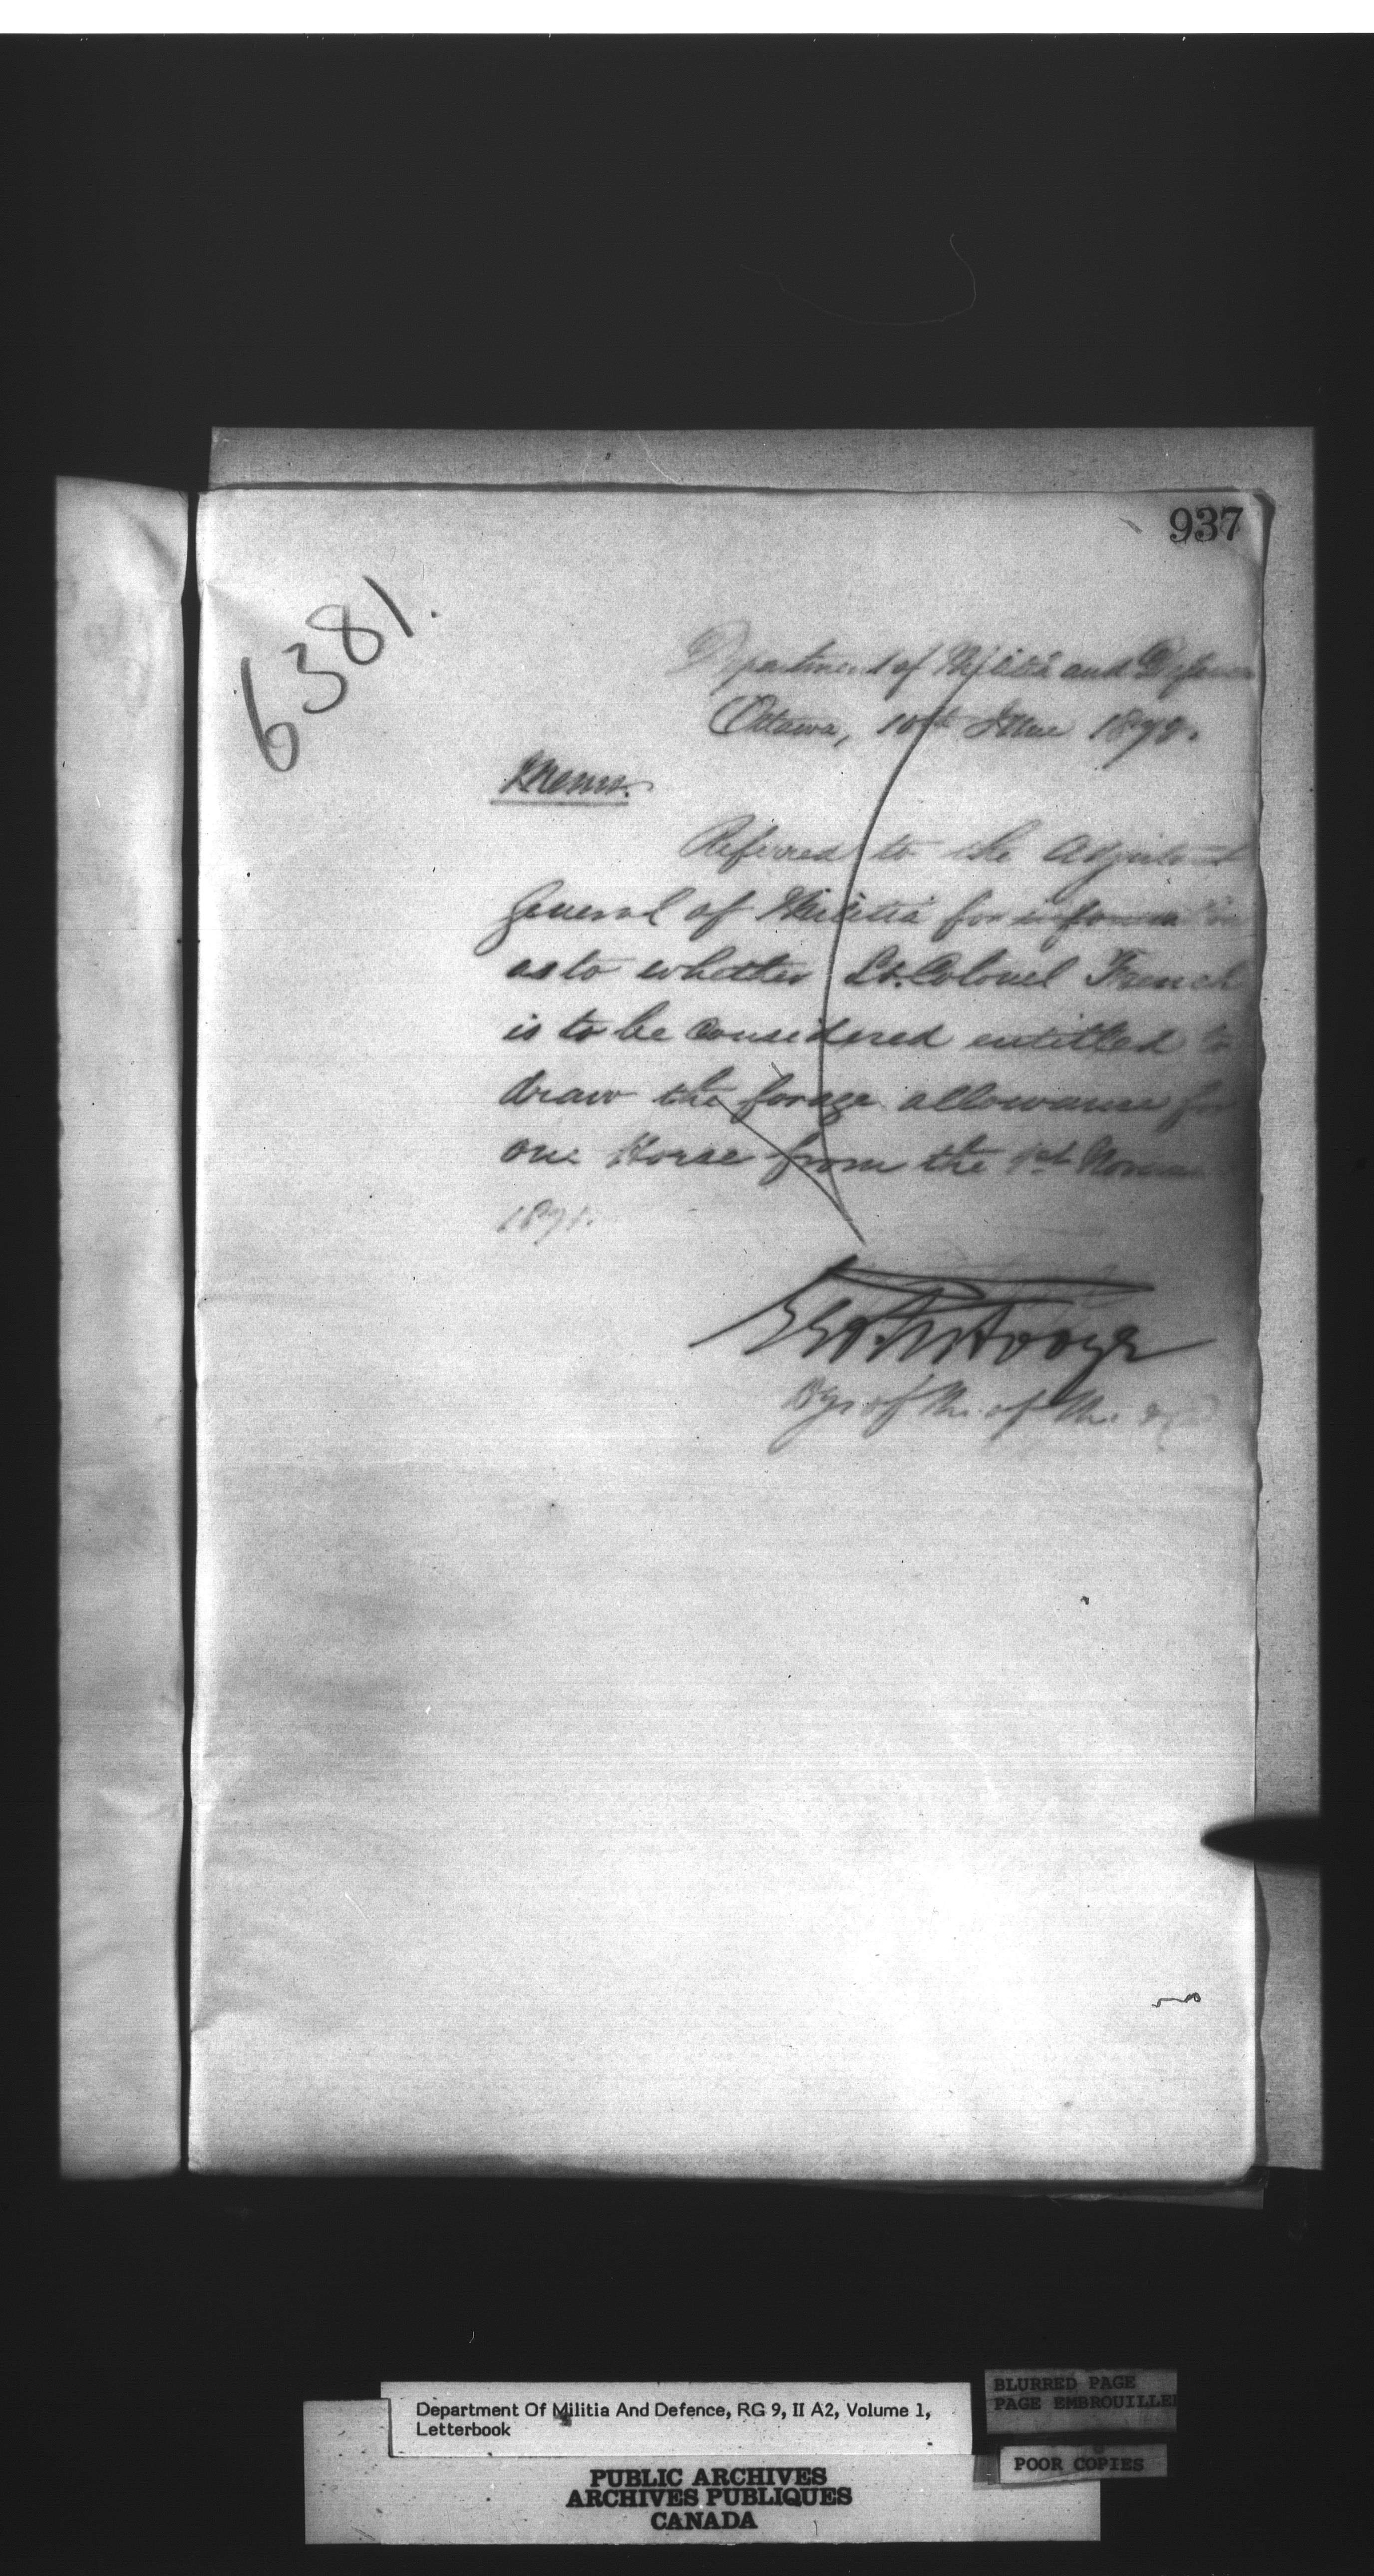 937
6381.
Department of Militia and Defence
Ottawa, 10th June 1872.
Memo.
Referred to the Adjutant
General of Militia for information
as to whether Lt. Colonel French
is to be considered entitled to
draw the forage allowance for
one Horse from the 1st Novem
1871.
of M. of M. &
Department Of Militia And Defence, RG 9, II A2, Volume 1,
Letterbook
BLURRED PAGE
PAGE EMBROUILLEE
POOR COPIES
PUBLIC ARCHIVES
ARCHIVES PUBLIQUES
CANADA